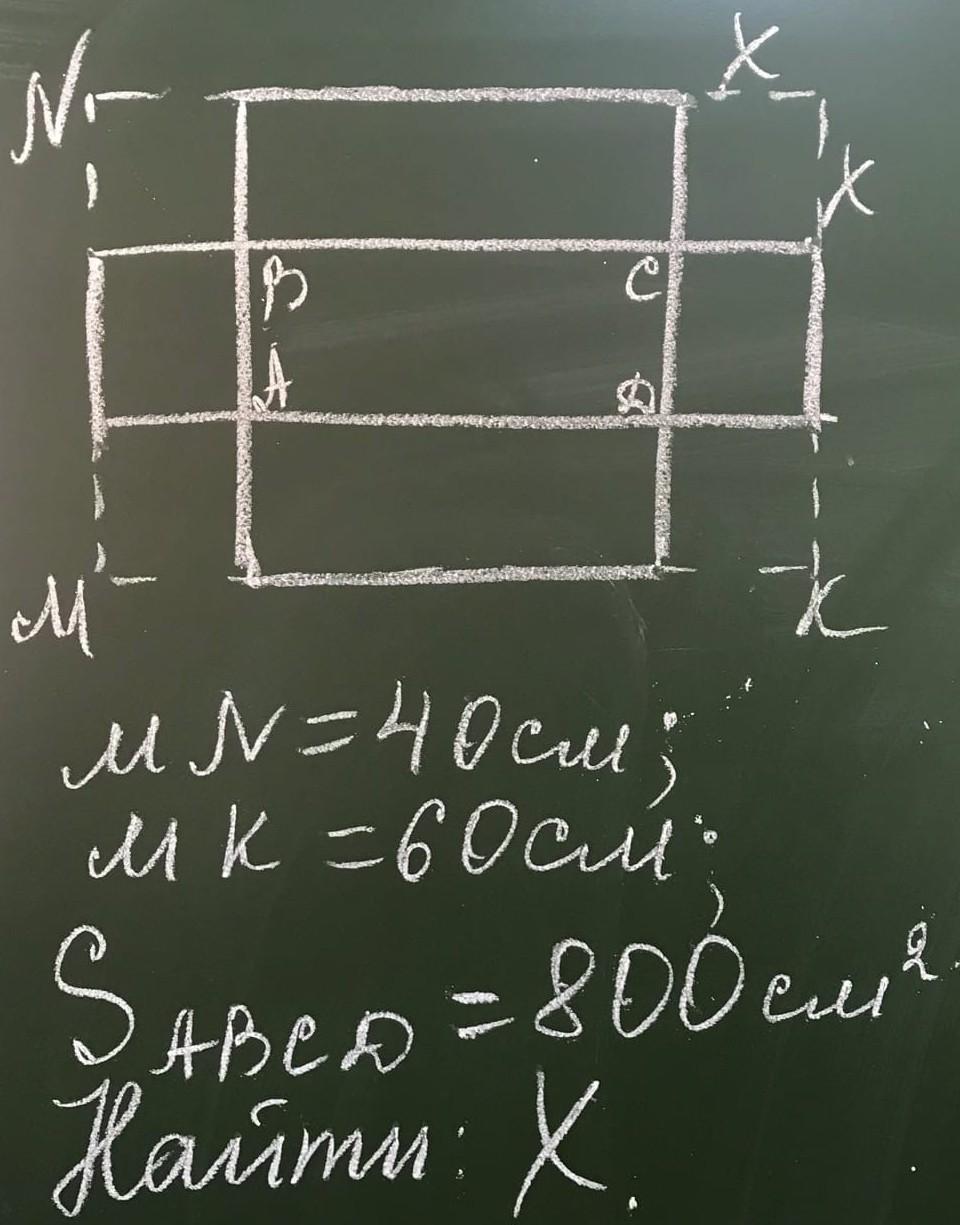 N X
X
B C
A D
M K
MN = 40 см;
MK = 60 см;
S ABCD = 800 см²
Найти: X.